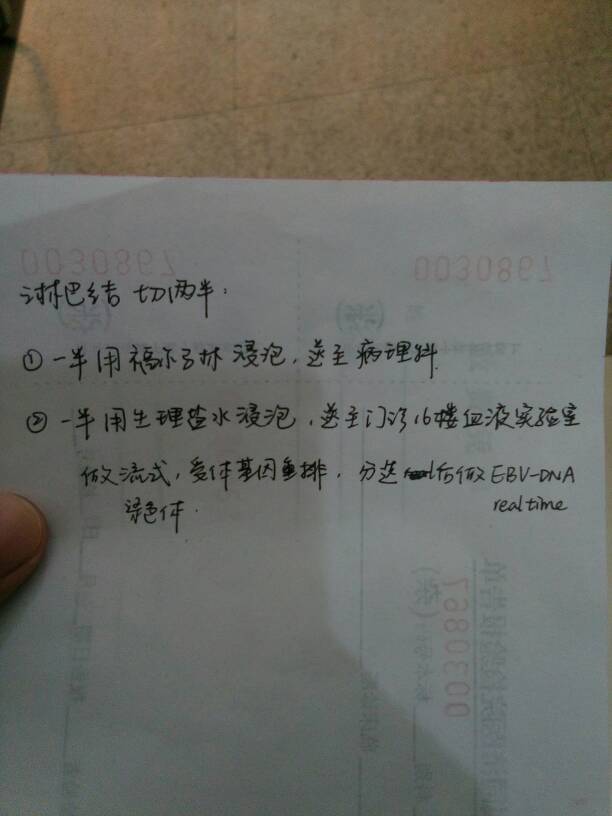 0030867
0030867
淋巴结 切两半:
①一半用福尔马林浸泡,送至病理科.
②一半用生理盐水浸泡,送至门诊16楼血液实验室
做流式,受体基因重排,分选后做EBV-DNA
染色体. realtime
0030867